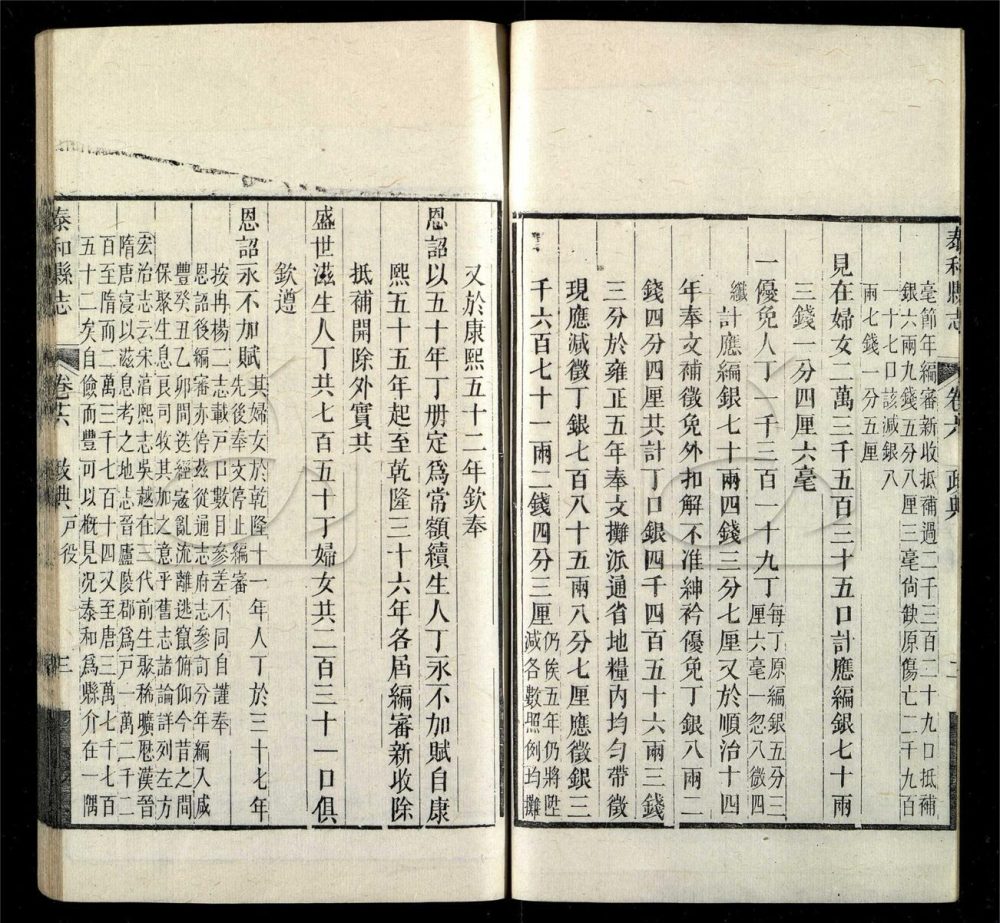 泰和縣志
卷六
政典
二
毫節年編審新收抵補過二千三百二十九口抵補
銀六兩九錢五分八厘三毫尙缺原傷亡二千九百
一十七口該減銀八
兩七錢一分五厘
見在婦女二萬三千五百三十五口計應編銀七十兩
三錢一分四厘六毫
一優免人丁一千三百一十九丁每丁原編銀五分三
厘六毫一忽八微四
纖
計應編銀七十兩四錢三分七厘又於順治十四
年奉文補徵免外扣解不准紳衿優免丁銀八兩二
錢四分四厘共計丁口銀四千四百五十六兩三錢
三分於雍正五年奉文攤派通省地糧內均勻帶徵
現應減徵丁銀七百八十五兩八分七厘應徵銀三
千六百七十一兩二錢四分三厘仍俟五年仍將陞
減各數照例均攤
又於康熙五十二年欽奉
恩詔以五十年丁册定爲常額續生人丁永不加賦自康
熙五十五年起至乾隆三十六年各屆編審新收除
抵補開除外實共
盛世滋生人丁共七百五十丁婦女共二百三十一口俱
欽遵
恩詔永不加賦其婦女於乾隆十一年人丁於三十七年
先後奉文停止編審
按冉楊二志載戶口數目參差不同自謹奉
恩詔後編審亦停茲從通志府志參訂分年編入咸
豐癸丑乙卯間迭經寇亂流離逃竄俯仰今昔之間
保聚生息良司牧其加之意乎舊志諸論詳列左方
宏治志云宋湻熙志吳越在三代前生聚稀曠歷漢晉
隋唐寖以滋息考之地志晉廬陵郡爲戶一萬二千二
百至隋而二萬三千七百一十四又至唐三萬七千七百
五十二矣自儉而豐可以槪見况泰和爲縣介在一隅
泰和縣志
卷六
政典
戶役
三